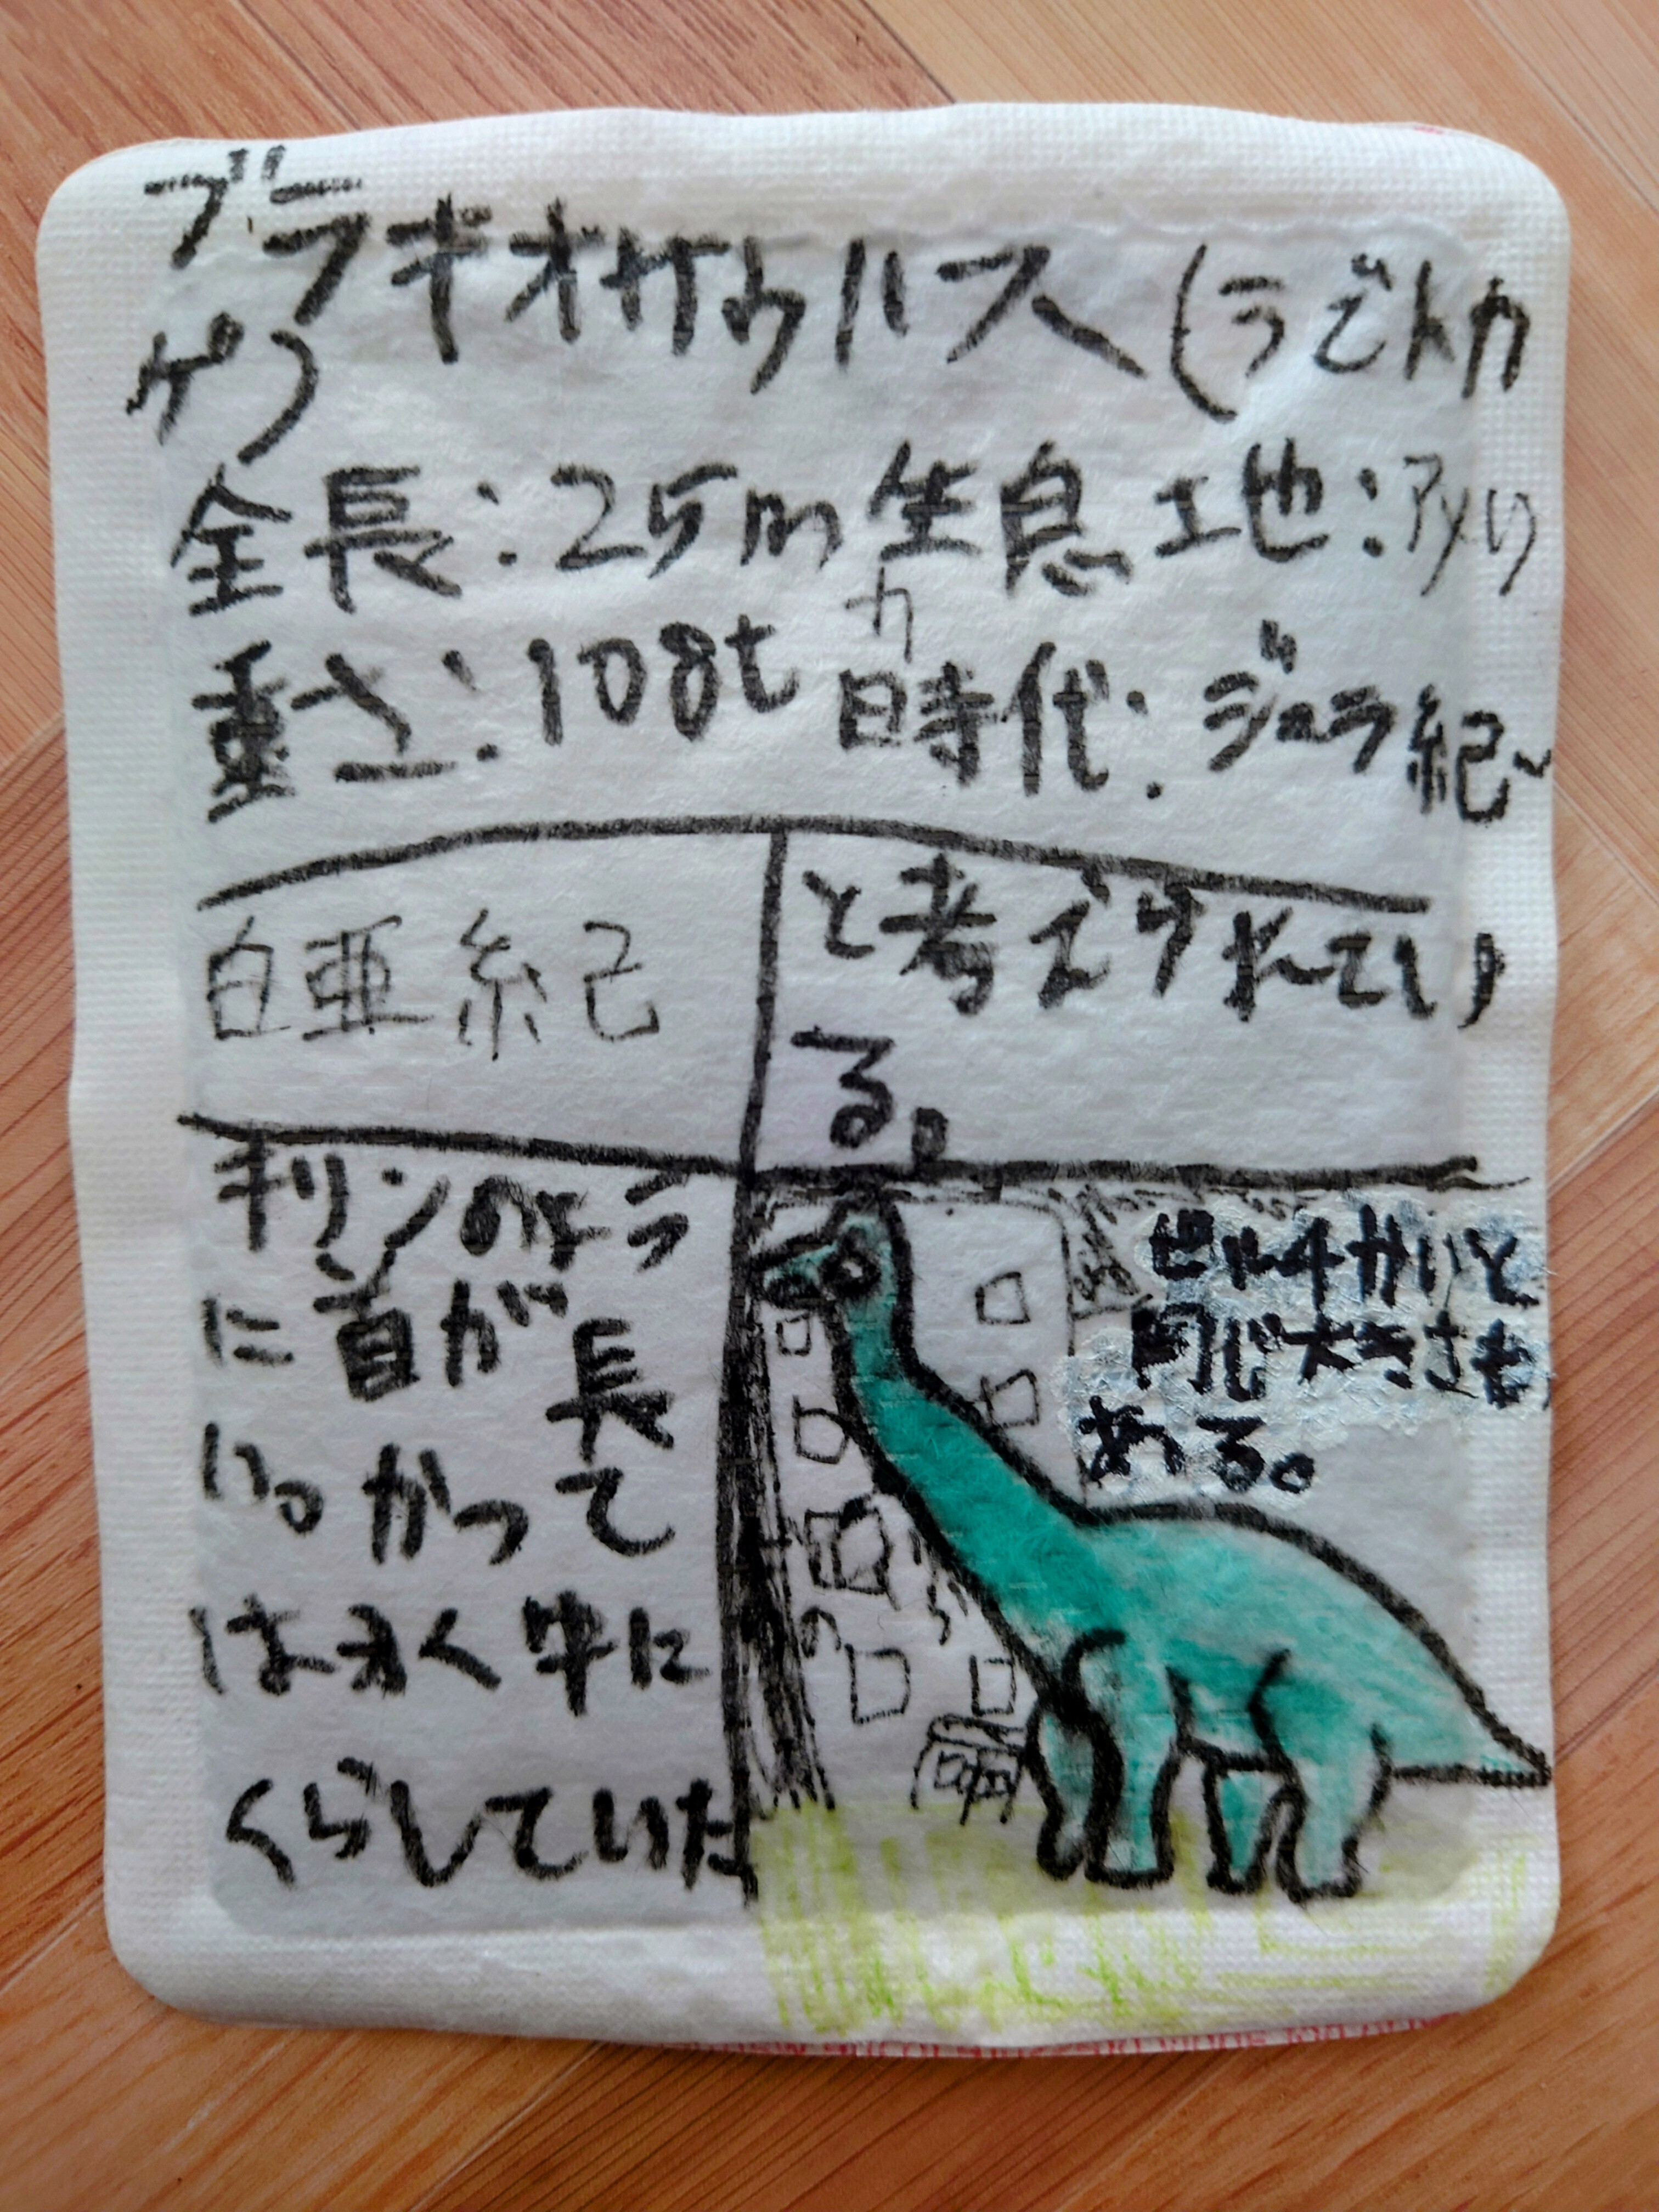 ブラキオサウルス(うでトカ
ゲ)
全長:25m 生息土地:アメリ
カ
重さ:108t 時代:ジュラ紀~
白亜紀
と考えられてい
る。
キリンのよう
に首が長
い。かつて
は水中に
くらしていた
ビル4かいと
同じ大きさも
ある。